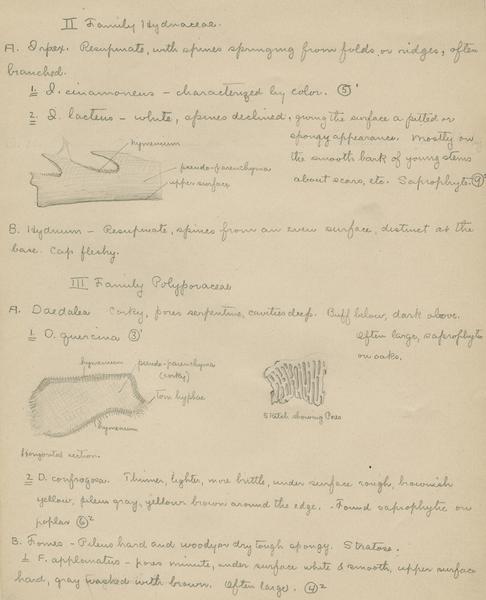 II Family Hydnaceae.
A. Irpex. Resupinate, with spines springing from folds or ridges, often
branched.
1. I. cinamoneus - characterized by color. (5)'
2. I. lacteus - white, spines declined, giving the surface a pitted or
spongy appearance. Mostly on
the smooth bark of young stems
about scars, etc. Saprophyte. (9)
hymenium
pseudo-parenchyma
upper surface
B. Hydnum - Resupinate, spines from an even surface, distinct at the
base. Cap fleshy.
III Family Polyporaceae
A. Daedalea Corky, pores serpentine, cavities deep. Buff below, dark above.
1 D. quercina (3)'
Often large, saprophyte
on oaks.
hymenium
pseudo-parenchyma
(corky)
Torn hyphae
hymenium
Sketch showing Pores
Horizontal section.
2 D. confragosa. Thinner, lighter, more brittle, under surface rough, brownish
yellow, pileus gray, yellow brown around the edge. - Found saprophytic on
poplar (6)²
B. Fomes - Pileus hard and woody or dry tough spongy. Stratose.
1 F. applanatus - pores minute, under surface white & smooth, upper surface
hard, gray washed with brown. Often large. (4)²